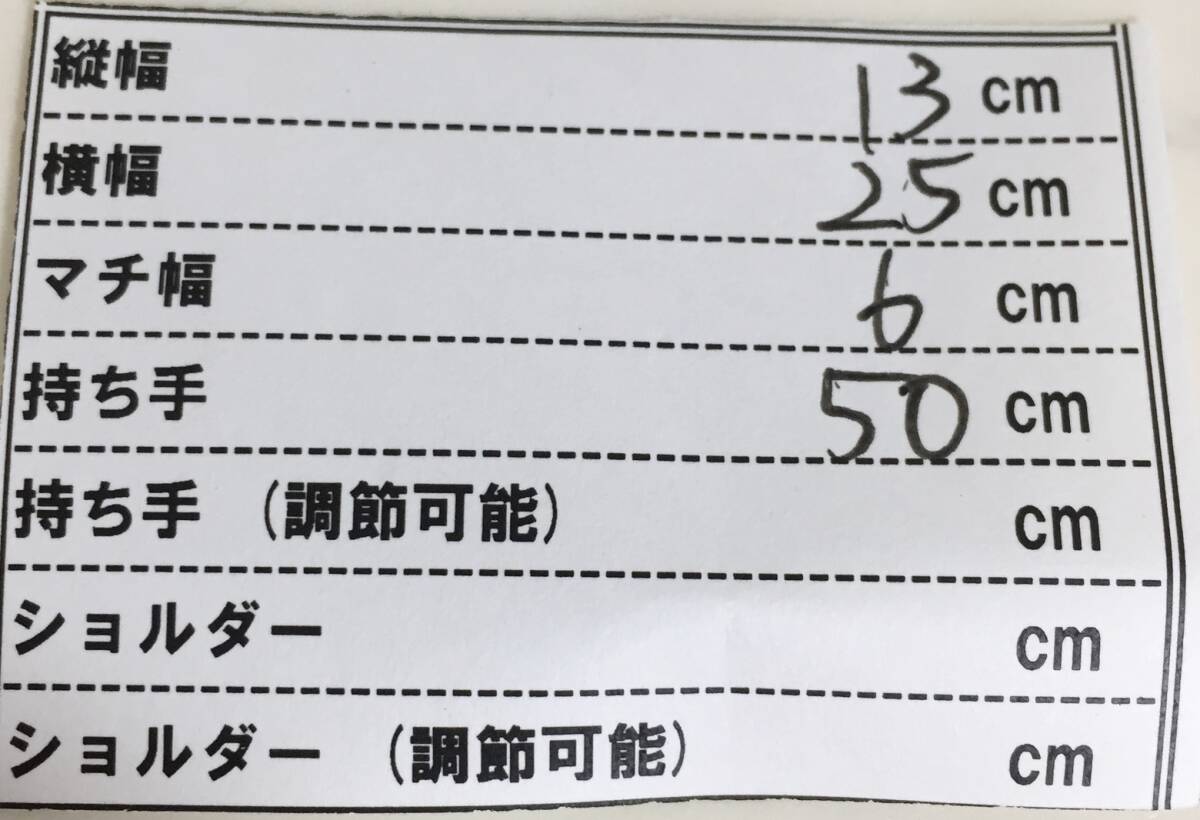 縦幅 13 cm
横幅 25 cm
マチ幅 6 cm
持ち手 50 cm
持ち手 (調節可能) cm
ショルダー cm
ショルダー (調節可能) cm